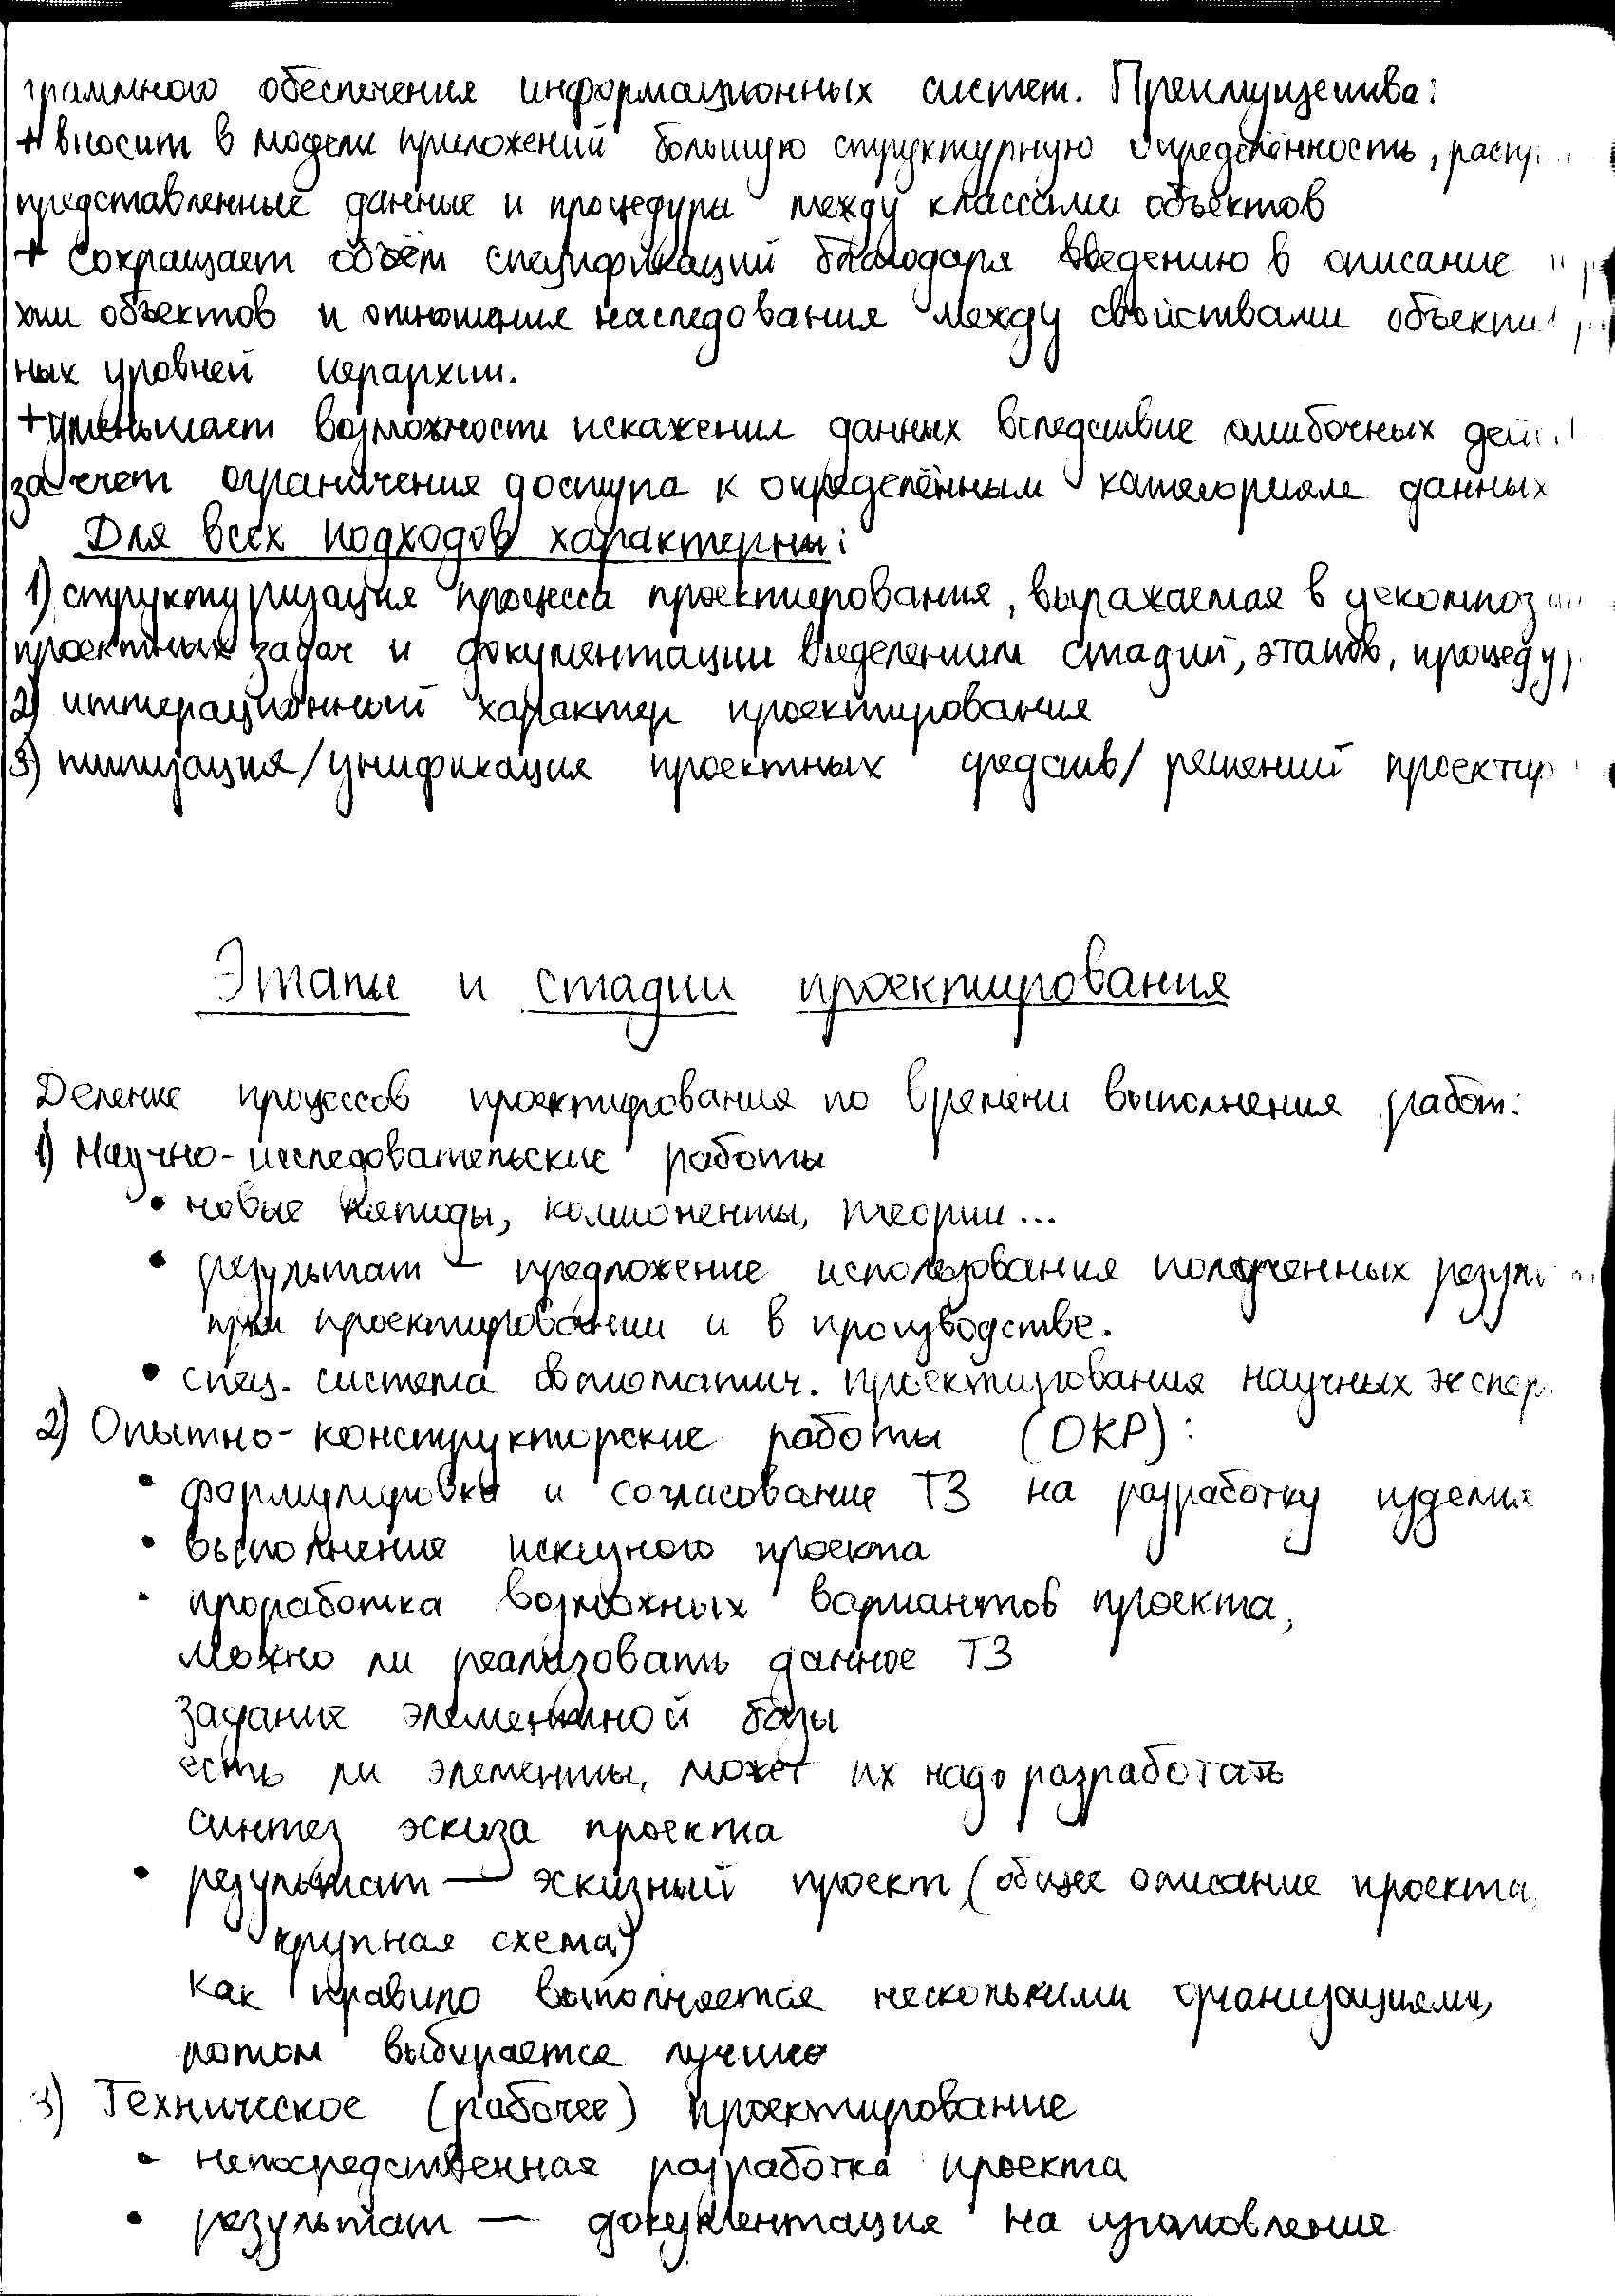 граммного обеспечения информационных систем. Преимущества:
+ вносит в модели приложений большую структурную определённость, распр
представленные данные и процедуры между классами объектов
+ сокращает объём спецификаций благодаря введению в описание
хии объектов и отношения наследования между свойствами объекта
ных уровней иерархии.
+ уменьшает возможности искажения данных вследствие ошибочных дей
за счёт ограничения доступа к определённым категориям данных
Для всех подходов характерны:
1) структуризация процесса проектирования, выражаемая в декомпоз
проектных задач и документации выделением стадий, этапов, процеду
2) иттерационный характер проектирования
3) типизация/унификация проектных средств/ решений проектир
Этапы и стадии проектирования
Деление процессов проектирования по времени выполнения работ:
1) Научно-исследовательские работы
• новые методы, компоненты, теории...
• результат – предложение использования полученных резуль
при проектировании и в производстве.
• спец. система автоматич. проектирования научных экспер.
2) Опытно-конструкторские работы (ОКР):
• формулировка и согласование ТЗ на разработку изделия
• выполнение искизного проекта
• проработка возможных вариантов проекта,
можно ли реализовать данное ТЗ
задание элементной базы
есть ли элементы, может их надо разработать
синтез эскиза проекта
• результат — эскизный проект (общее описание проекта,
крупная схема)
как правило выполняется несколькими организациями,
потом выбирается лучшее
3) Техническое (рабочее) проектирование
• непосредственная разработка проекта
• результат — документация на изготовление